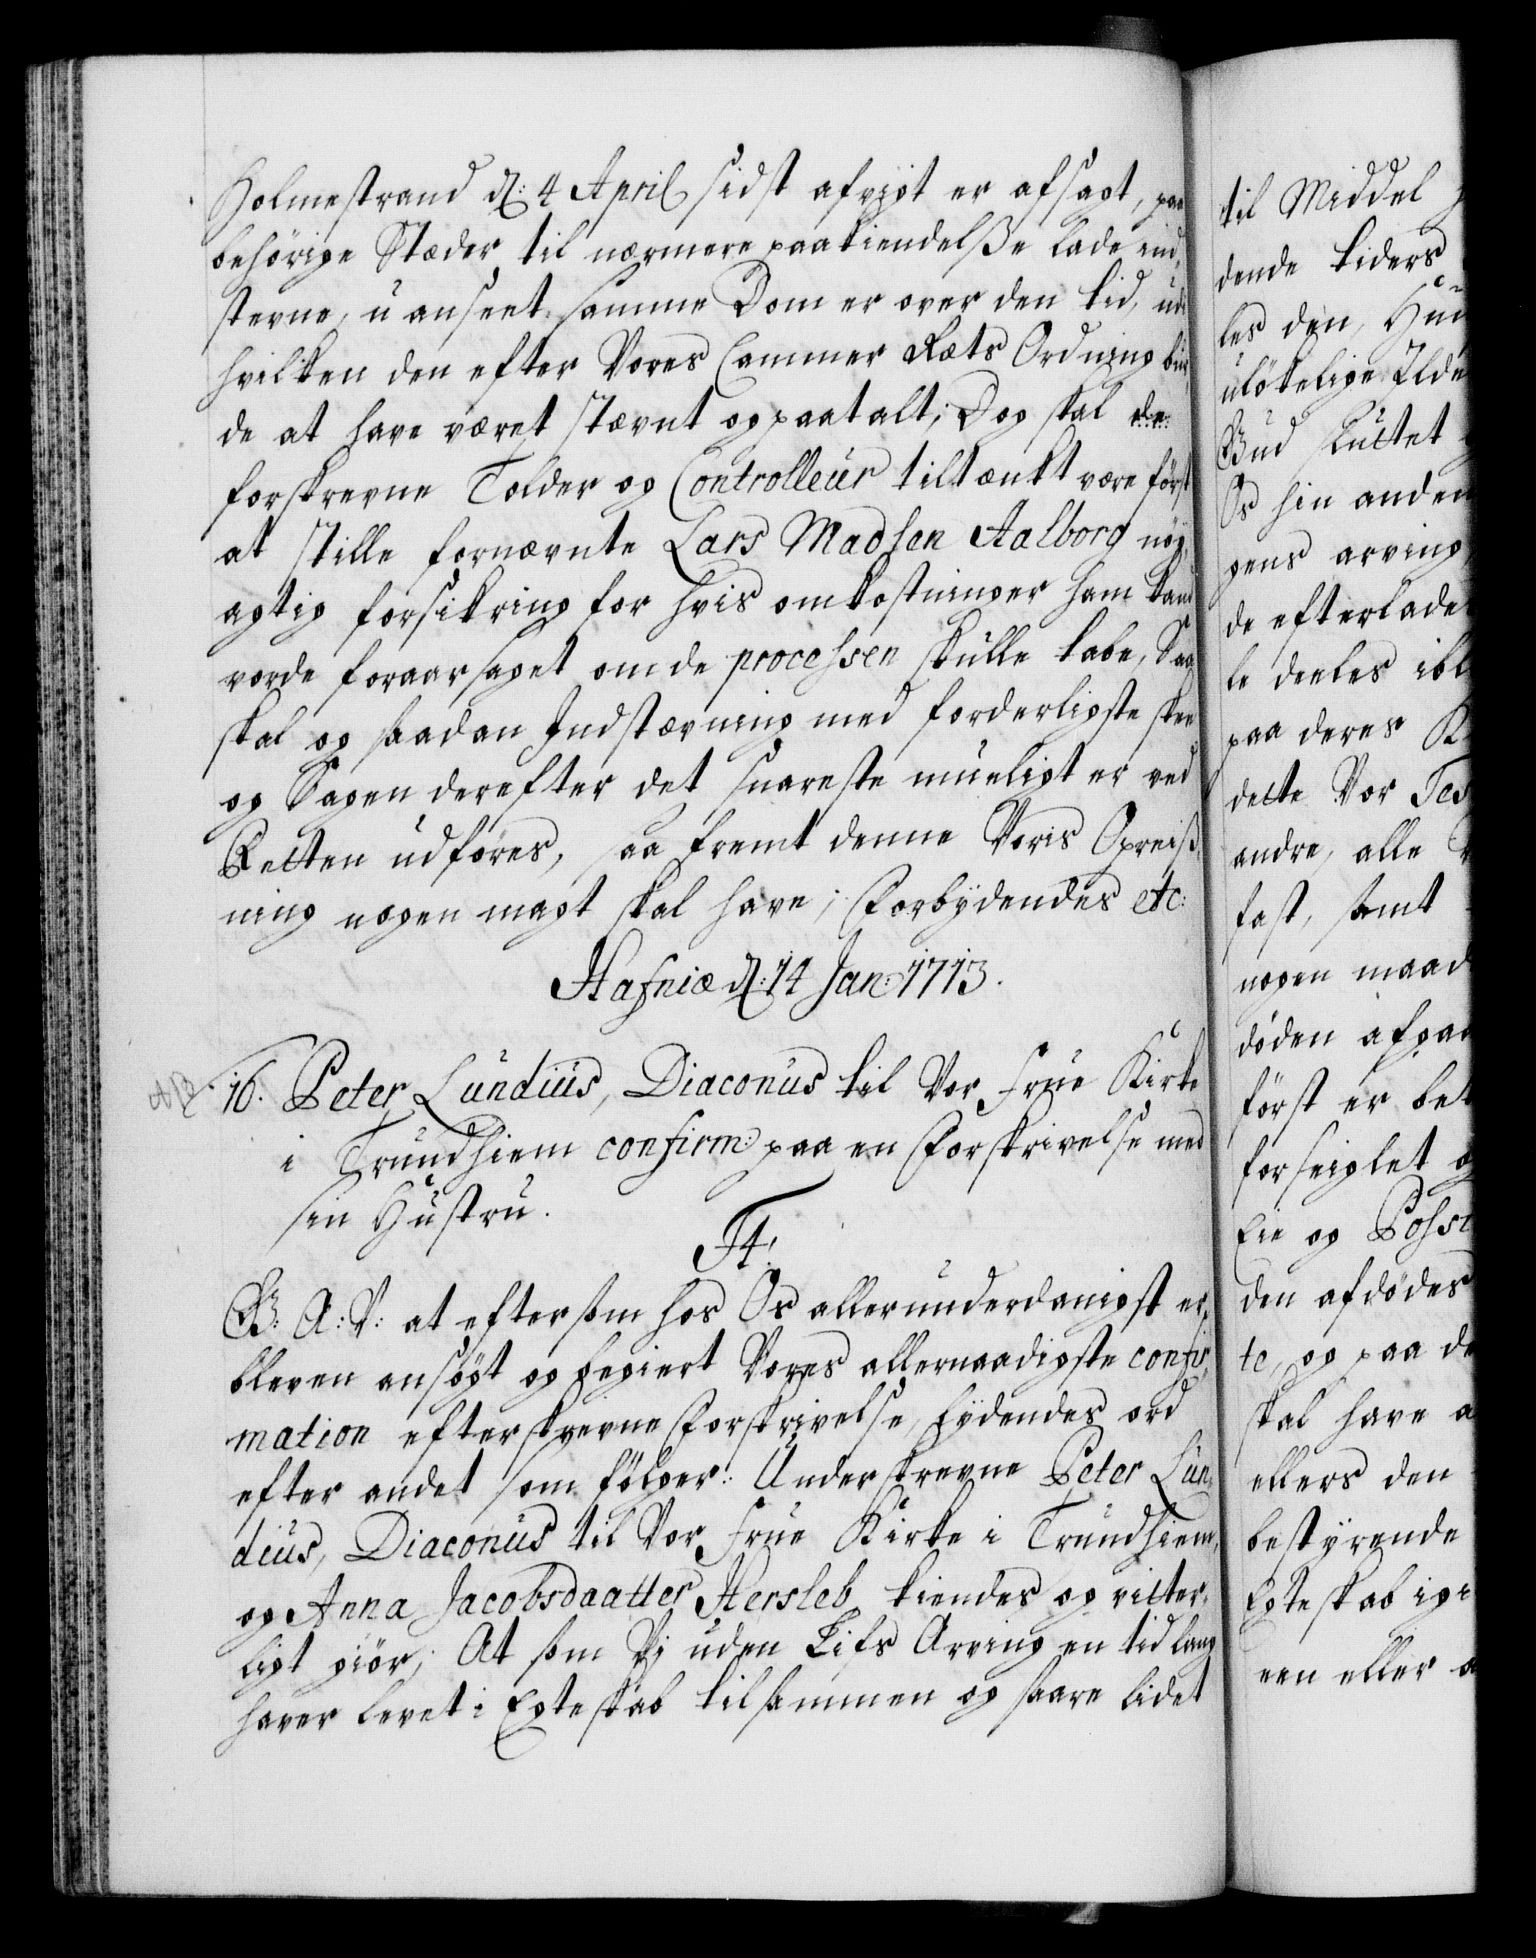 Holmestrand d: 4 April sidst afvigt er afsagt, paa
behörige Stæder til nærmere paakiendelsse lade ind,
stevne, u anseet samme Dom er over den tid, ud
hvilken den efter Vores Cammer Ræts Ordning bur,
de at have været stævnt og paatalt; Dog skal de
forskrevne Tolder og Controlleur tiltænkt være först
at stille fornævnte Lars Madsen Aalborg nöÿ,
agtig forsikring for hvis omkostninger ham kand
vorde foraarsaget om de processen skulle tabe, Saa
skal og saadan Indstævning med forderligste skee
og Sagen derefter det snareste mueligt er ved
Retten udföres, saa fremt denne Voris Opreis,
ning nogen magt skal have; Forbydendes etc:
Hafniæ d: 14 Jan: 1713.
16. Peter Lundius, Diaconus til Vor Frue Kirke
i Trundhiem confirm: paa en Forskrivelse med
sin Hustru.
F4.
G: A: V: at eftersom hos Os allerunderdanigst er
bleven ansögt og begiert Vores allernaadigste confir,
mation efterskrevne Forskrivelse, lydendes ord
efter andet som fölger: Underskrevne Peter Lun,
dius, Diaconus til Vor Frue Kirke i Trundhiem,
og Anna Jacobsdaatter Hersleb kiendes og vitter,
ligt giör; At som Vj uden Lifs Arving en tid lang
haver levet i Egteskab tilsammen og saare lidet
til Middel
dende tiders
les den, Hu
ulökelige Ilde
Gud sluttet
Os hin anden
gens arving
de efterlade
le deeles ibl
paa deres K
dette Vor Tes
andre, alle
fast, samt
nogen maad
döden afgaa
först er bet
forseiglet o
Eie og Posse
den afdödes
te, og paa de
skal have a
ellers den
bestÿrende
Egteskab igi
een eller a